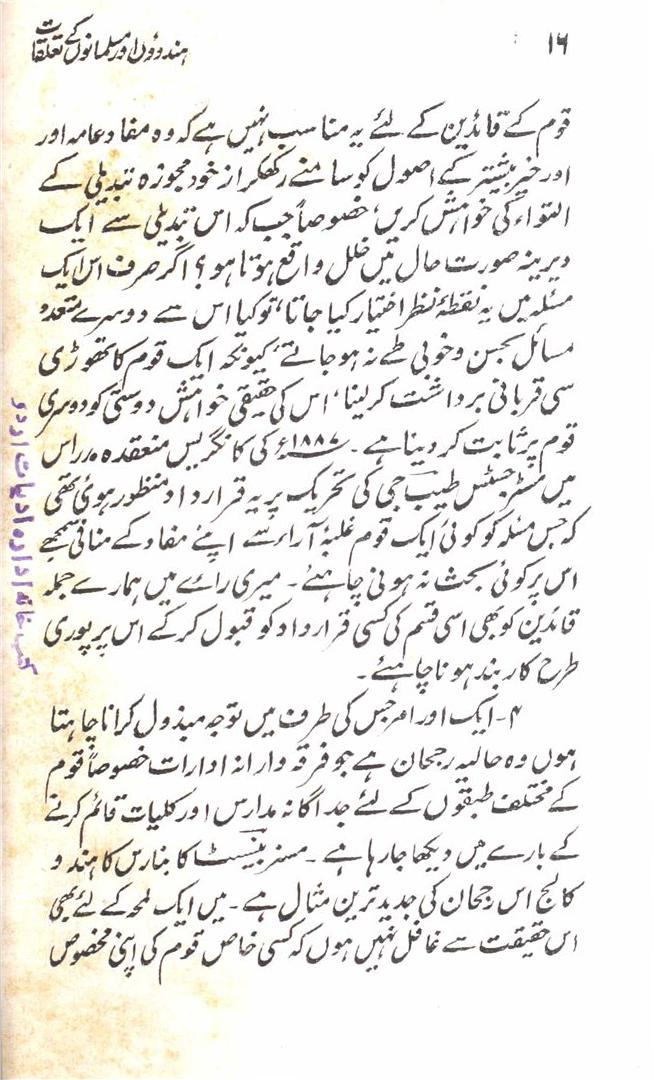 ۱۶
ہندوؤں اور مسلمانوں کے تعلقات
قوم کے قائدین کے لئے یہ مناسب نہیں ہے کہ وہ مفاد عامہ اور
اور خیر بیشتر کے اصول کو سامنے رکھکر از خود مجوزہ تبدیلی کے
التواء کی خواہش کریں، خصوصاً جب کہ اس تبدیلی سے ایک
دیرینہ صورت حال میں خلل واقع ہوتا ہو؟ اگر صرف اس ایک
مسئلہ میں یہ نقطۂ نظر اختیار کیا جاتا، تو کیا اس سے دوسرے متعدد
مسائل بحسن و خوبی طے نہ ہو جاتے، کیونکہ ایک قوم کا تھوڑی
سی قربانی برداشت کرلینا، اس کی حقیقی خواہش دوستی کو دوسری
قوم پر ثابت کر دیتا ہے۔ ۱۸۸۷ء کی کانگریس منعقدہ مدراس
میں مسٹر جسٹس طیب جی کی تحریک پر یہ قرار داد منظور ہوئی تھی
کہ جس مسئلہ کو کوئی ایک قوم غلبۂ آراء سے اپنے مفاد کے منافی سمجھے
اس پر کوئی بحث نہ ہونی چاہئے۔ میری رائے میں ہمارے جملہ
قائدین کو بھی اسی قسم کی کسی قرار داد کو قبول کرکے اس پر پوری
طرح کاربند ہونا چاہئے۔
۴۔ ایک اور امر جس کی طرف میں توجہ مبذول کرانا چاہتا
ہوں وہ حالیہ رجحان ہے جو فرقہ وارانہ ادارات خصوصاً قوم
کے مختلف طبقوں کے لئے جداگانہ مدارس اور کلیات قائم کرنے
کے بارے میں دیکھا جا رہا ہے۔ مسز بیسنٹ کا بنارس کا ہندو
کالج اس رجحان کی جدید ترین مثال ہے۔ میں ایک لمحہ کے لئے بھی
اس حقیقت سے غافل نہیں ہوں کہ کسی خاص قوم کی اپنی مخصوص
کتب خانہ ادارہ ادبیات اردو